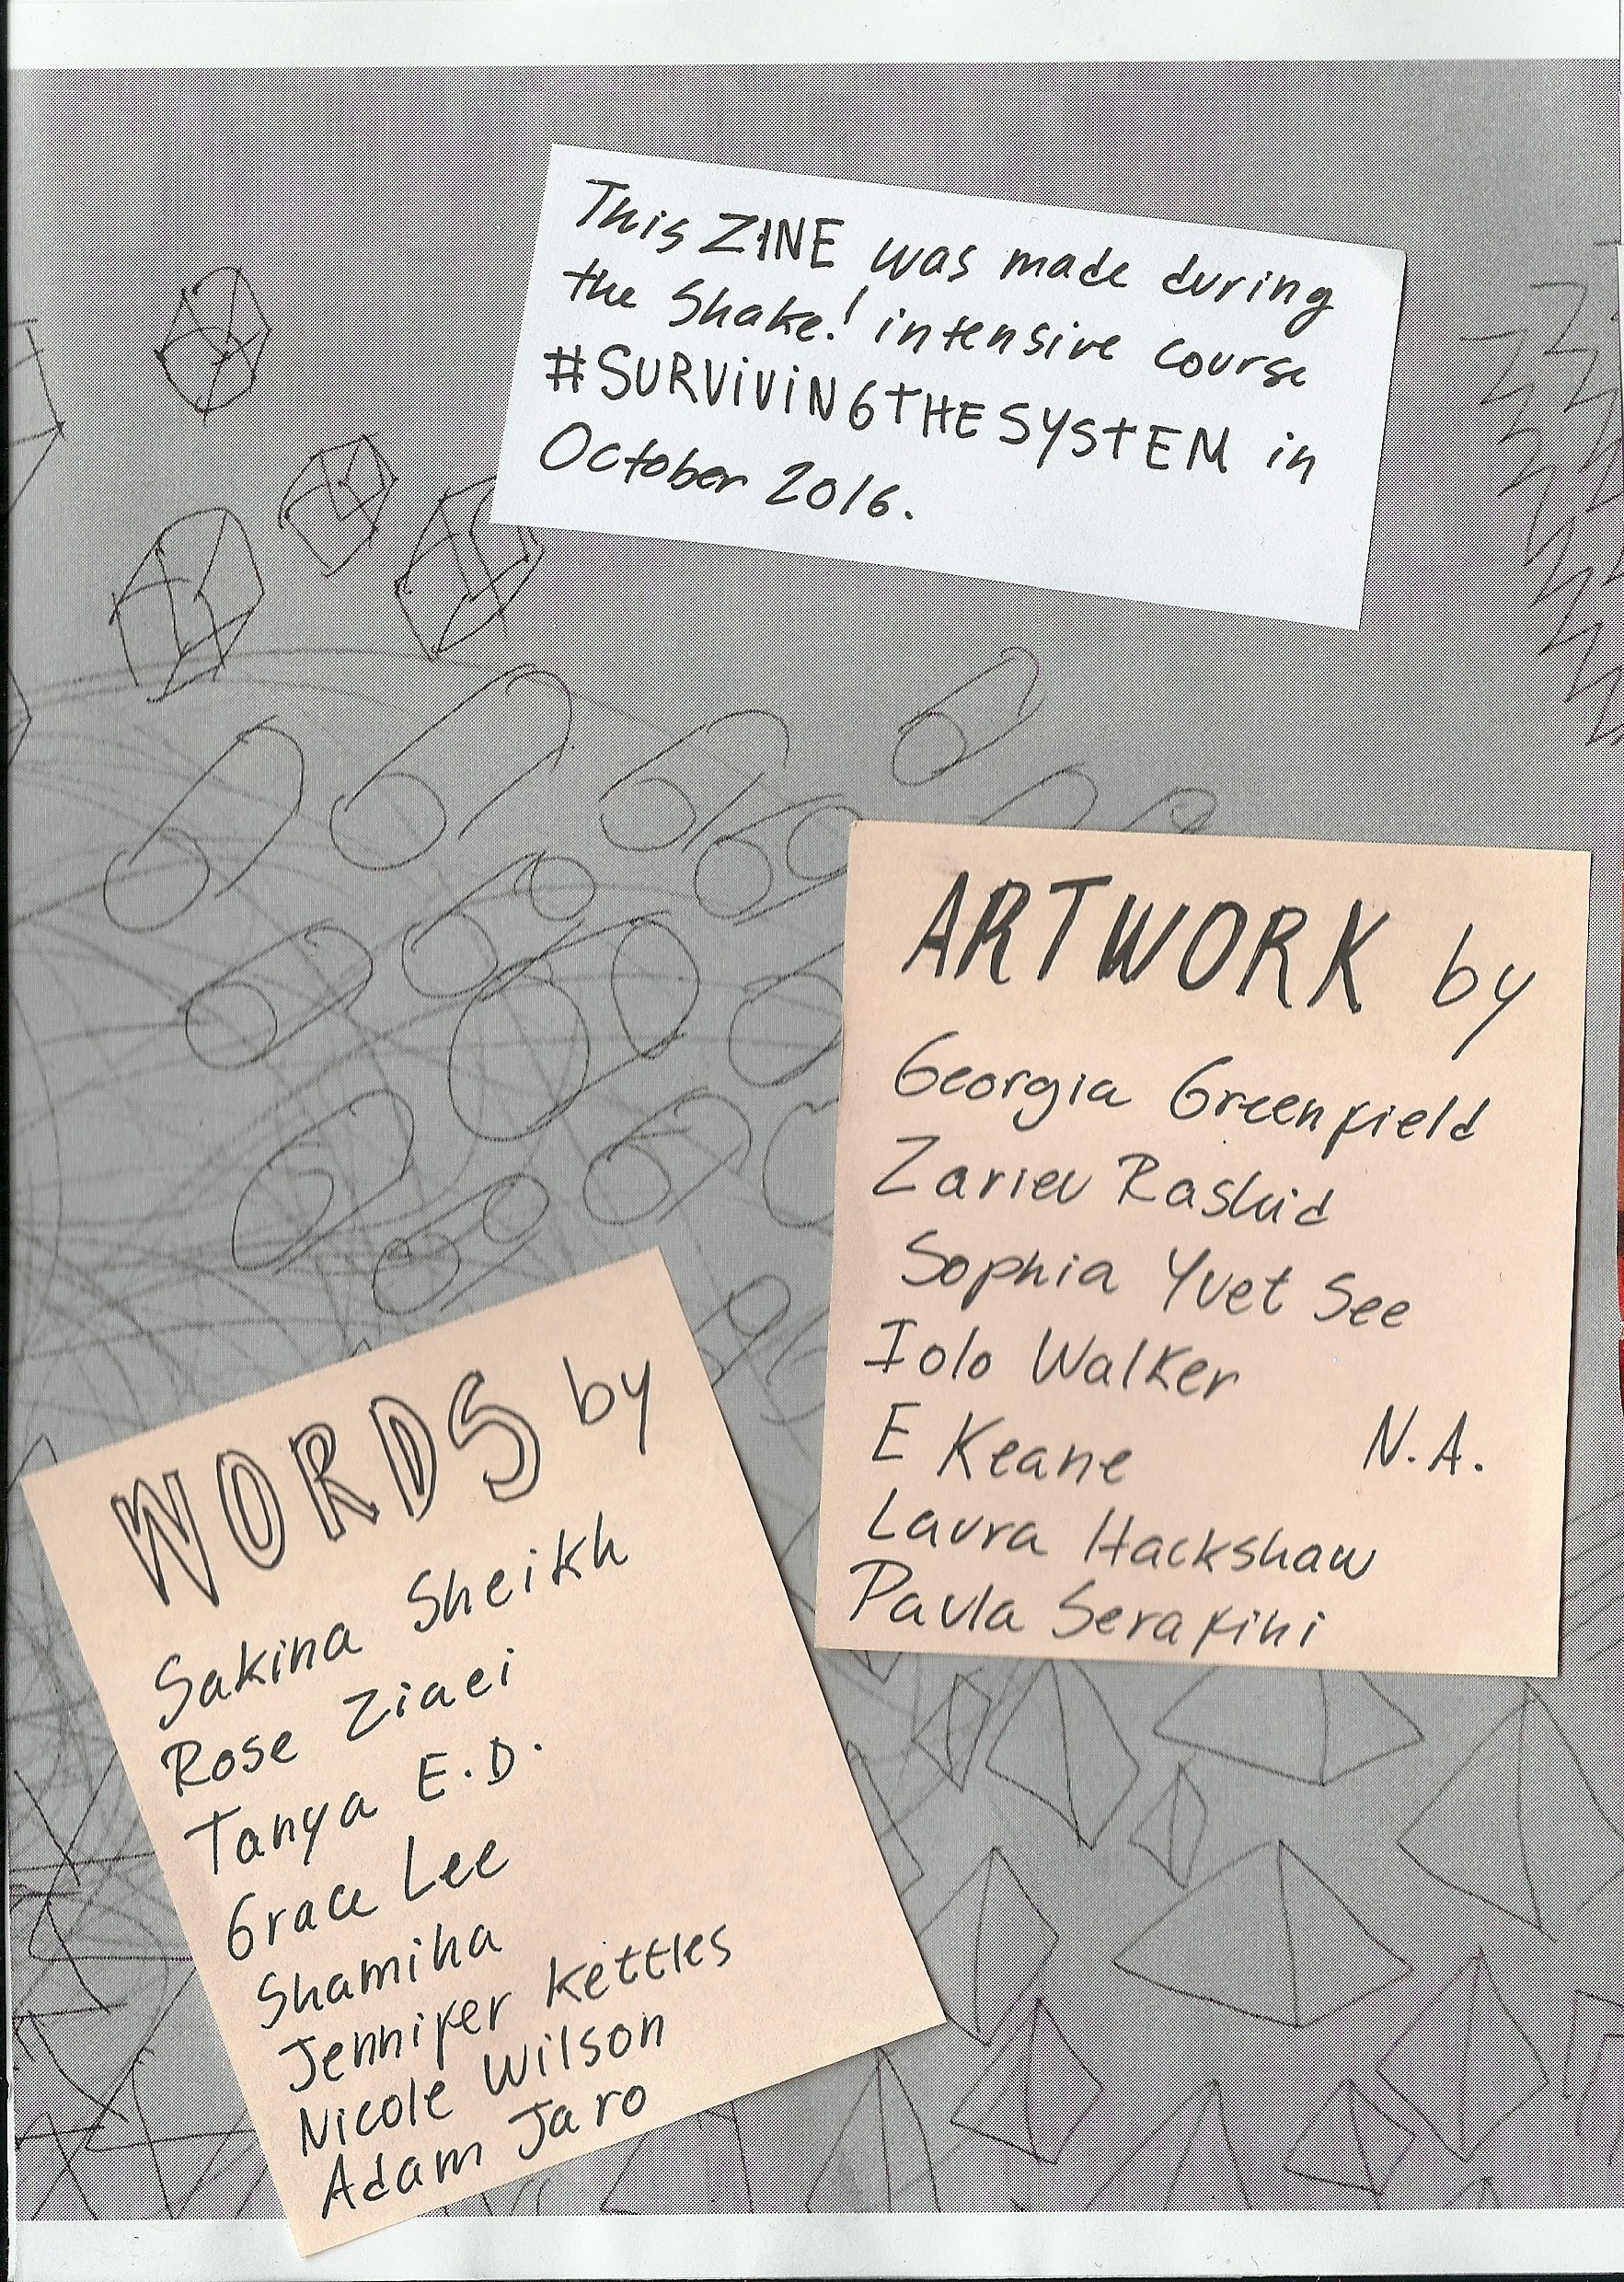 This ZINE was made during
the Shake! intensive course
#SURViViNGTHESYSTEM in
October 2016.
ARTWORK by
Georgia Greenfield
Zariev Rashid
Sophia Yvet See
Iolo Walker
E Keane N.A.
Laura Hackshaw
Paula Serafini
WORDS by
Sakina Sheikh
Rose Ziaei
Tanya E.D.
Grace Lee
Shamiha
Jennifer Kettles
Nicole Wilson
Adam Jaro